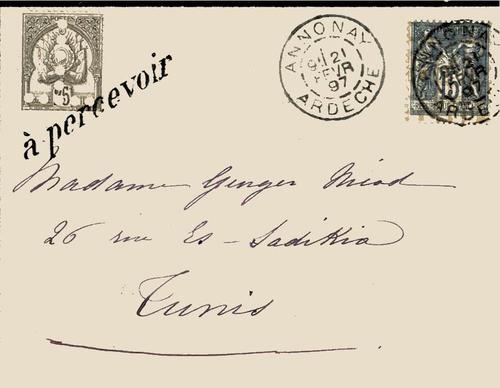 5
à percevoir
ANNONAY
21
FEVR
97
ARDECHE
15
Madame Genger Niod
26 rue Es-Sadikia
Tunis